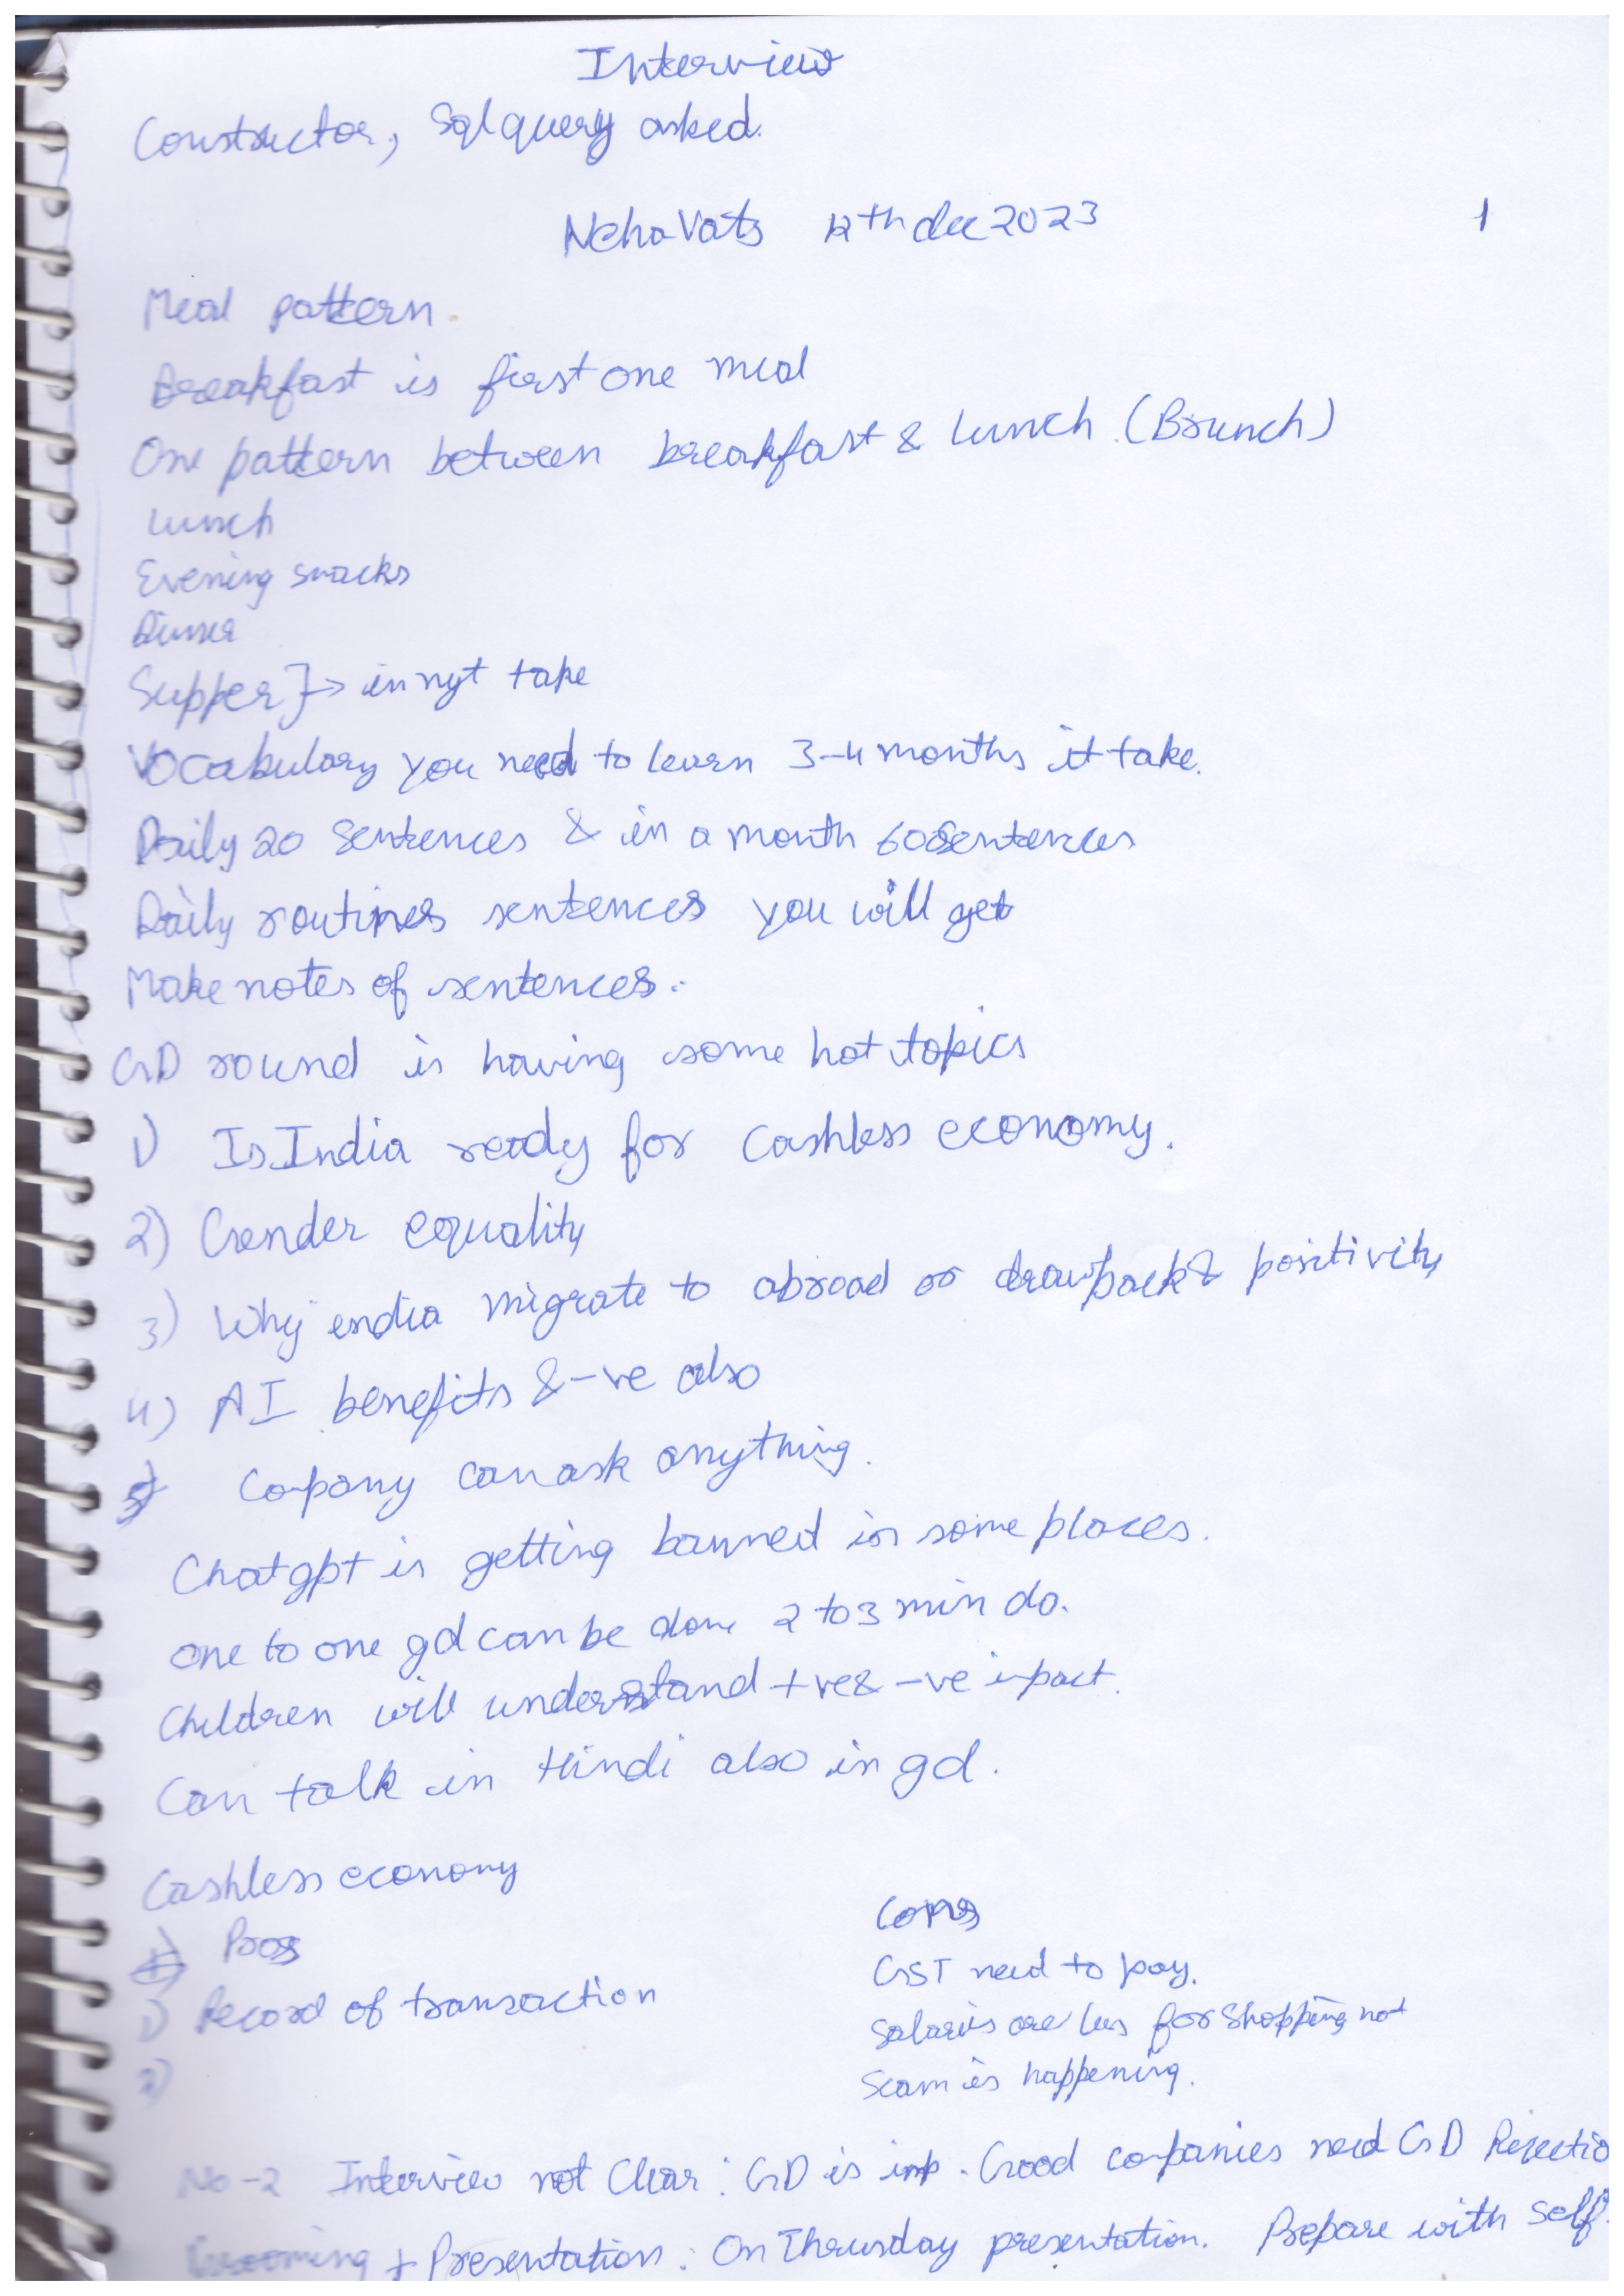 Interview
Constructor, Sql query asked.
Neha Vats 12th dec 2023 1
Meal pattern.
Breakfast is first one meal
One pattern between breakfast & lunch. (Brunch)
Lunch
Evening snacks
Dinner
Supper }→ in nyt take
Vocabulary you need to learn 3-4 months it take.
Daily 20 Sentences & in a month 600 sentences
Daily routines sentences you will get
Make notes of sentences.
GD round is having some hot topics
1) Is India ready for Cashless economy.
2) Gender equality
3) Why india migrate to abroad or drawback & positivity
4) AI benefits & -ve also
5) Copany can ask anything.
Chatgpt is getting banned in some places.
one to one gd can be done 2 to 3 min do.
Children will understand +ve & -ve ipact.
Can talk in Hindi also in gd.
Cashless economy
Pros Cons
1) Record of transaction GST need to pay.
2) Salaries are less for Shopping not
Scam is happening.
No-2 Interview not Clear : GD is imp. Good copanies need GD Rejectio
Grooming + Presentation : On Thrusday presentation. Prepare with self